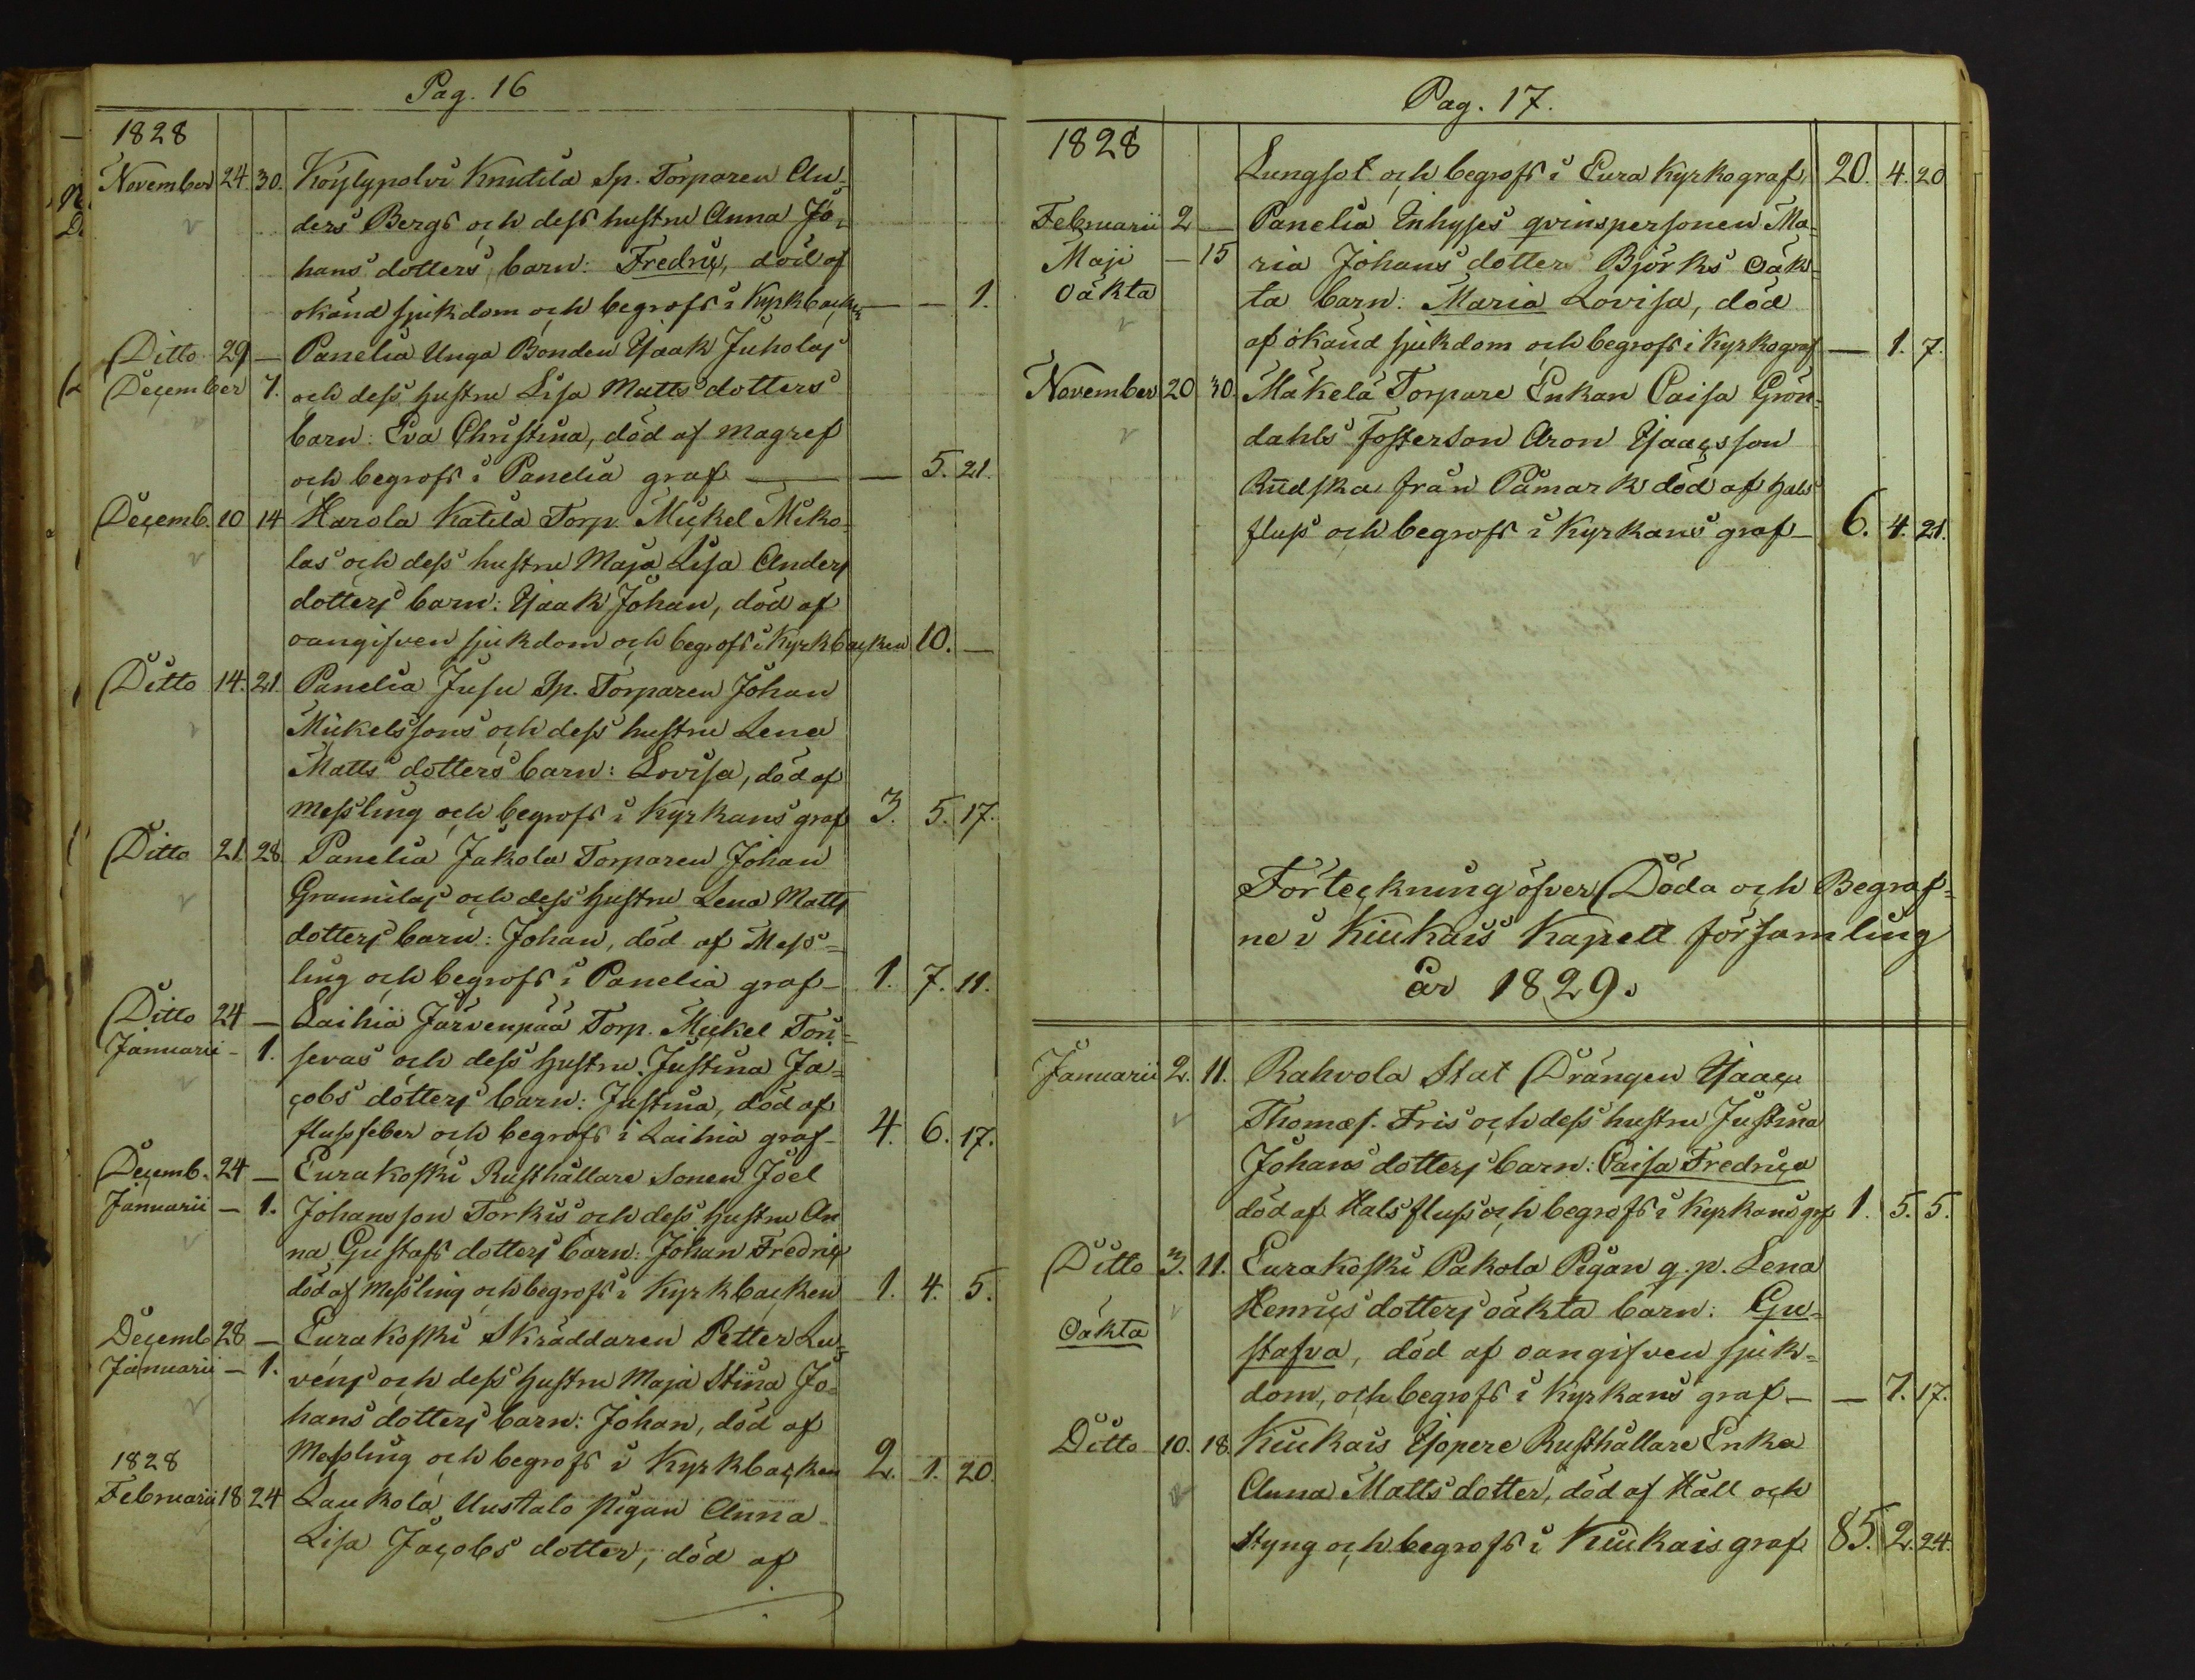 Pag. 16
1828
November 24. 30. Köylypolvi Knutila Sp. Torparen An-
ders Bergs och dess hustru Anna Jo-
hans dotters barn: Fredric, död af
okänd sjukdom och begrofs i Kyrkbacken — — 1.
Ditto 29 — Panelia Unga Bonden Isaak Juholas
December 7. och dess hustru Lisa Matts dotters
barn: Eva Christina, död af magref
och begrofs i Panelia graf — — 5. 21.
Decemb. 10 14 Harola Katila Torp. Mickel Miko-
las och dess hustru Maja Lisa Anders
dotters barn: Isaak Johan, död af
oangifven sjukdom och begrofs i Kyrkbacken 10. —
Ditto 14. 21. Panelia Jusu Sp. Torparen Johan
Mickelssons och dess hustru Lena
Matts dotters barn: Lovisa, död af
messling och begrofs i Kyrkans graf 3. 5. 17.
Ditto 21. 28. Panelia Jakola Torparen Johan
Grannilas och dess hustru Lena Matts
dotters barn: Johan, död af Mess-
ling och begrofs i Panelia graf — 1. 7. 11.
Ditto 24 — Laihia Järvenpää Torp. Mickel Ton-
Januarii — 1. sevas och dess hustru Justina Ja-
cobs dotters barn: Justina, död af
flussfeber och begrofs i Laihia graf — 4. 6. 17.
Decemb. 24 — Eurakoski Rusthållare Sonen Joel
Januarii — 1. Johansson Torkis och dess hustru An
na Gustafs dotters barn: Johan Fredric
död af Messling och begrofs i Kyrkbacken 1. 4. 5.
Decemb 28 — Eurakoski Skräddaren Petter Lu-
Januarii — 1. vens och dess hustru Maja Stina Jo-
hans dotters barn: Johan, död af
Messling och begrofs i Kyrkbacken 2. 1. 20.
1828
Februarii 18 24 Laukola Uustalo pigan Anna
Lisa Jacobs dotter, död af
Pag. 17.
1828
Lungsot och begrofs i Eura Kyrkograf 20. 4. 20
Februarii 2 — Panelia Inhyses qvinspersonen Ma-
Maji — 15 ria Johans dotter Björks oäk-
oäkta ta barn: Maria Lovisa, död
af okänd sjukdom och begrofs i Kyrkograf — 1. 7.
November 20 30. Mäkelä Torpare Enkan Caisa Grön-
dahls fosterson Aron Isaacsson
Rudska från Påmark död af hals
fluss och begrofs i Kyrkans graf — 6. 4. 21.
Förteckning öfver Döda och Begraf-
ne i Kiukais Kapell församling
år 1829.
Januarii 2. 11. Rahvola Stat Drängen Isaac
Thomæs. Fris och dess hustru Justina
Johans dotters barn: Caisa Fredrica
död af Halsfluss och begrofs i Kyrkans graf 1. 5. 5.
Ditto 3. 11. Eurakoski Pakola Pigan q. p. Lena
Henrics dotters oäkta barn: Gu-
oäkta stafva, död af oangifven sjuk-
dom, och begrofs i Kyrkans graf — — 7. 17.
Ditto 10. 18. Kiukais Isopere Rusthållare Enka
Anna Matts dotter, död af Håll och
Styng och begrofs i Kiukais graf 85. 2. 24.